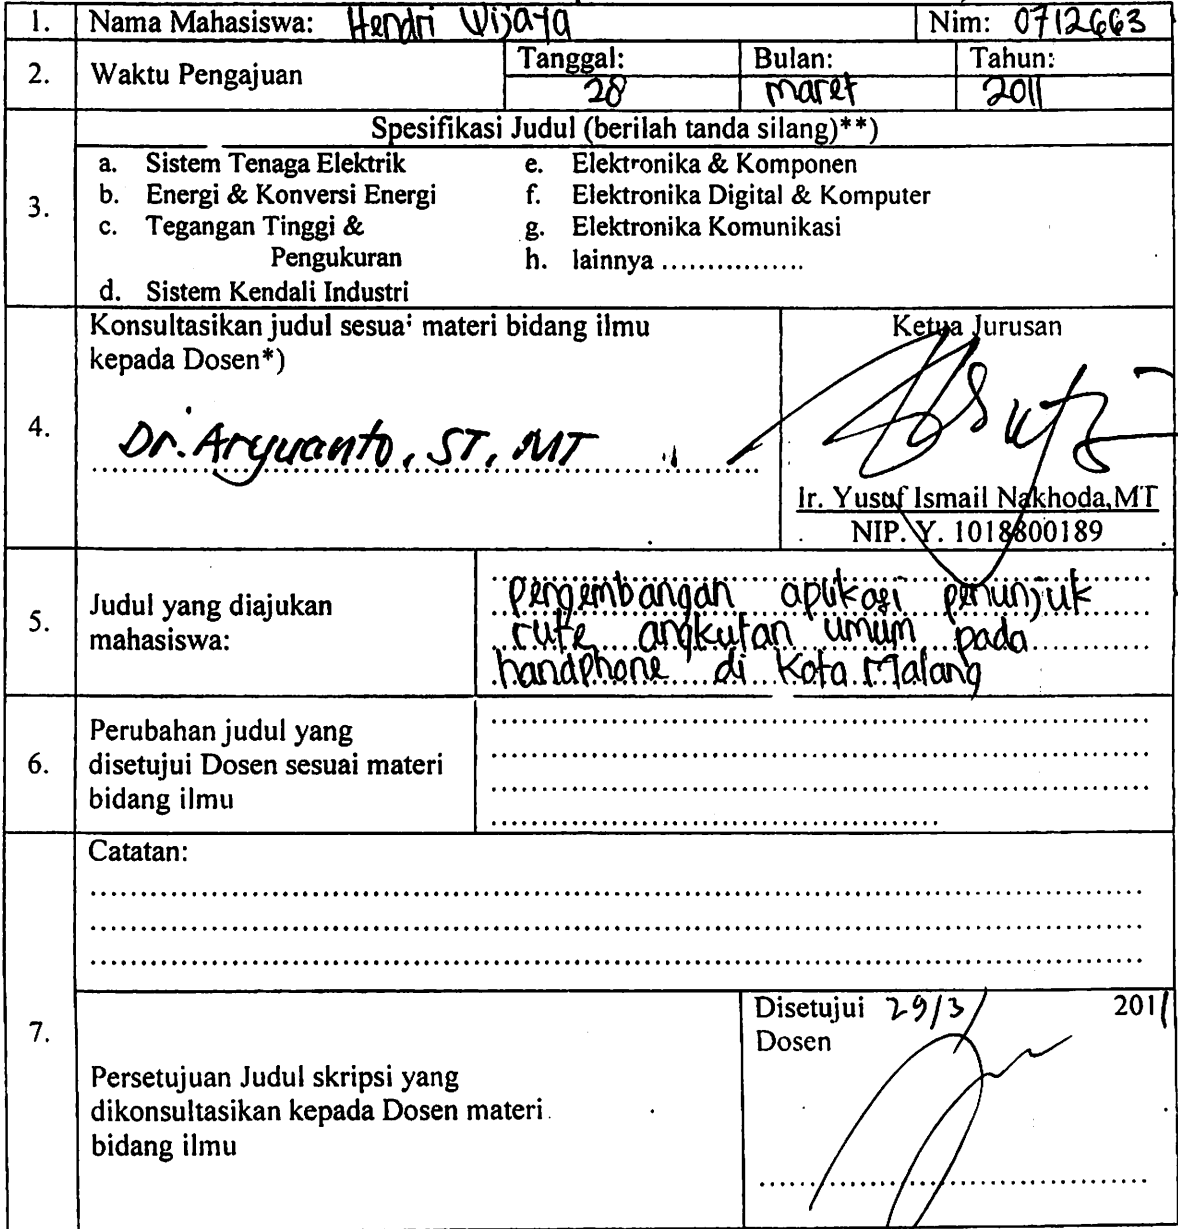 1. Nama Mahasiswa: Hendri Wijaya Nim: 0712663
2. Waktu Pengajuan Tanggal: Bulan: Tahun:
28 maret 2011
Spesifikasi Judul (berilah tanda silang)**)
3.
a. Sistem Tenaga Elektrik
b. Energi & Konversi Energi
c. Tegangan Tinggi &
Pengukuran
d. Sistem Kendali Industri
e. Elektronika & Komponen
f. Elektronika Digital & Komputer
g. Elektronika Komunikasi
h. lainnya .................
4.
Konsultasikan judul sesuai materi bidang ilmu
kepada Dosen*)
Dr. Aryuanto, ST, MT
Ketua Jurusan
Ir. Yusuf Ismail Nakhoda,MT
NIP. Y. 1018800189
5.
Judul yang diajukan
mahasiswa:
pengembangan aplikasi penunjuk
rute angkutan umum pada
handphone di Kota Malang
6.
Perubahan judul yang
disetujui Dosen sesuai materi
bidang ilmu
7.
Catatan:
Persetujuan Judul skripsi yang
dikonsultasikan kepada Dosen materi
bidang ilmu
Disetujui 29/3 2011
Dosen